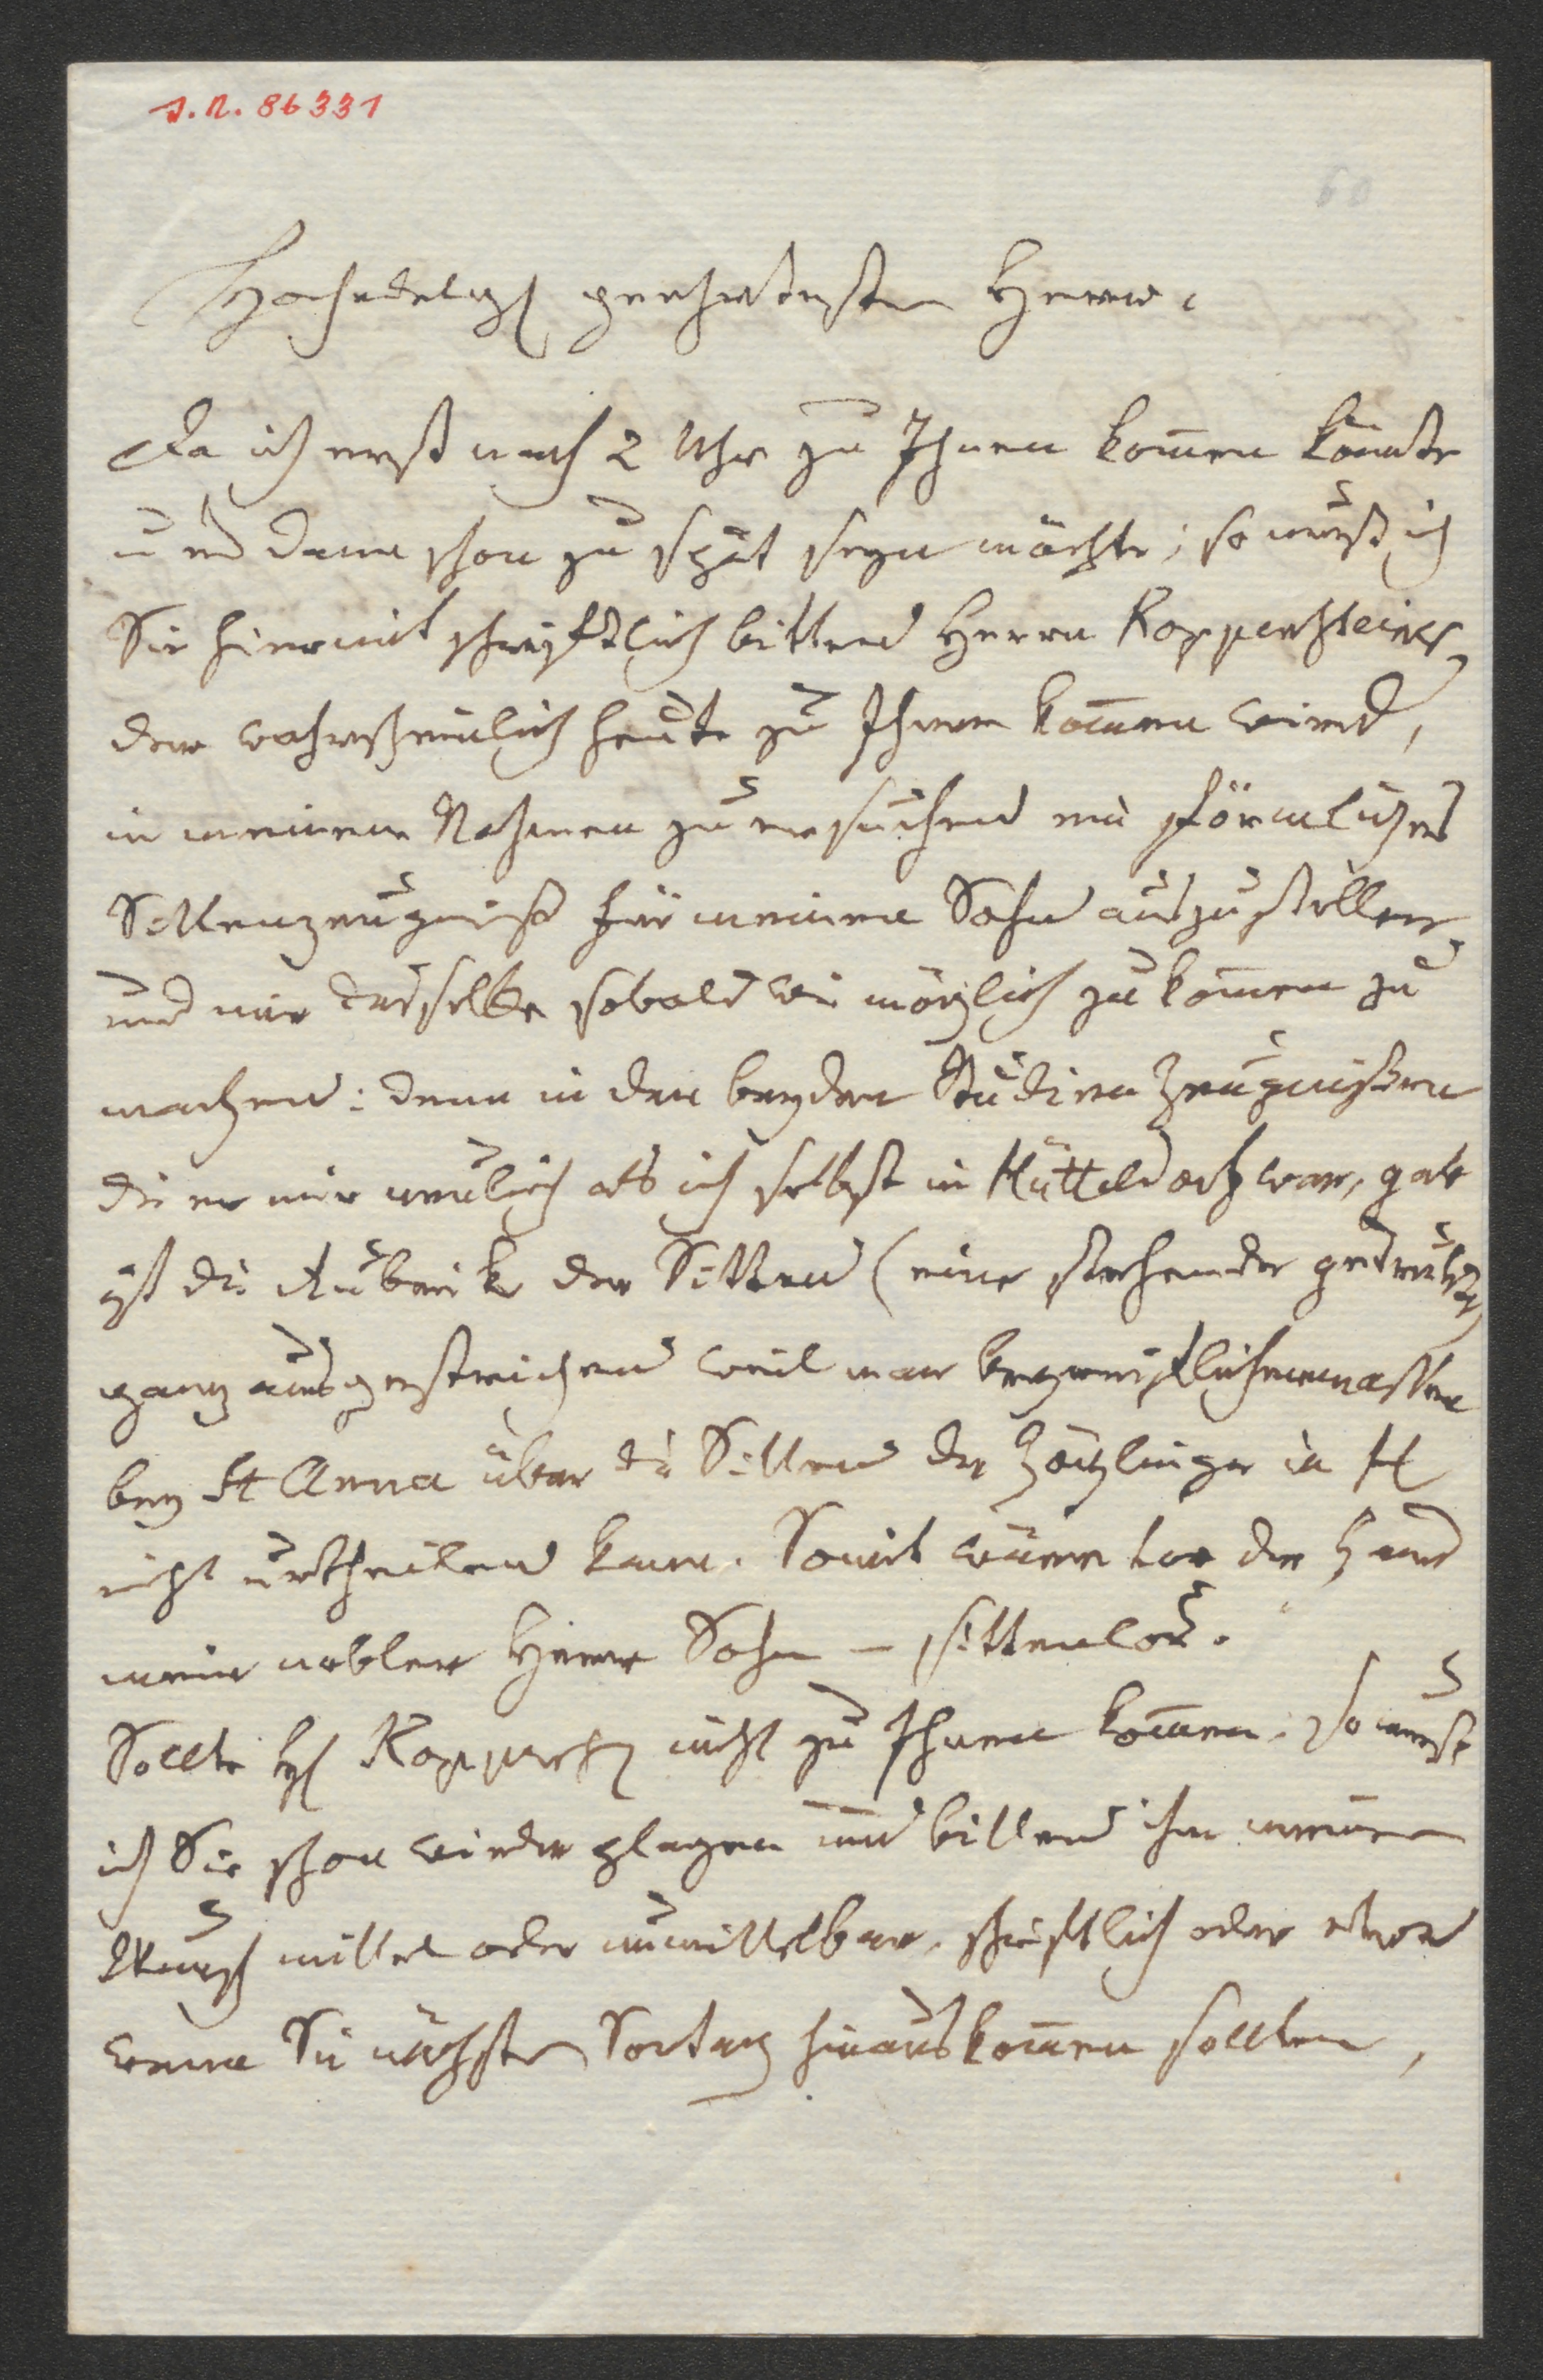 J.N. 86331
60
Hochedelgb geehrtester Herr.
Da ich erst nach 2 Uhr zu Ihnen kom̅en kön̅te
und dann schon zu spät seyn möchte; so muß ich
Sie hiermit schriftlich bitten Herrn Koppensteiner,
der wahrscheinlich heute zu Ihnen kom̅en wird,
in meinem Nahmen zu ersuchen mir förmliches
Sittenzeugniß für meinen Sohn auszustellen,
und mir dasselbe sobald wie möglich zukom̅en zu
machen: denn in den beyden Studien Zeugnißen
die er mir neulich als ich selbst in Hütteldorf war, gab
ist die Rubrik der Sitten (eine stehende gedruckte)
ganz ausgestrichen weil man begreiflichermassen
bey St Anna über die Sitten der Zöglinge in H
nicht urtheilen kann. Somit wäre vor der Hand
mein nobler Herr Sohn – sittenlos.
Sollte H Koppenst nicht zu Ihnen kom̅en. so muß
ich Sie schon wieder plagen und bitten ihm meinen
Wunsch mittel oder unmittelbar. schriftlich oder etwa
wenn Sie nächsten Sontag hinauskom̅en sollten,